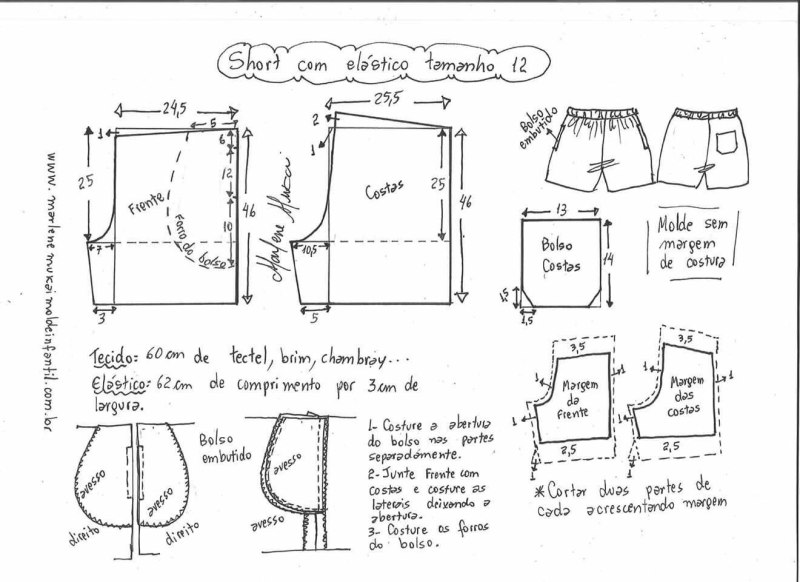 Short com elástico tamanho 12
24,5
5
1
6
12
10
25
46
7
3
Frente
Forro do
bolso
25,5
2
1
25
46
10,5
5
Costas
Marlene Mukai
www.marlenemukaimoldeinfantil.com.br
Bolso
embutido
13
14
1,5
1,5
Bolso
Costas
Molde sem
margem
de costura
Tecido: 60cm de tectel, brim, chambray...
Elástico: 62cm de comprimento por 3cm de
largura.
Bolso
embutido
avesso
avesso
direito
direito
avesso
avesso
1- Costure a abertura
do bolso nas partes
separadamente.
2- Junte frente com
costas e costure as
laterais deixando a
abertura.
3- Costure os forros
do bolso.
3,5
1
1
1
2,5
Margem
da
frente
3,5
1
1
1
2,5
Margem
das
costas
*Cortar duas partes de
cada acrescentando margem